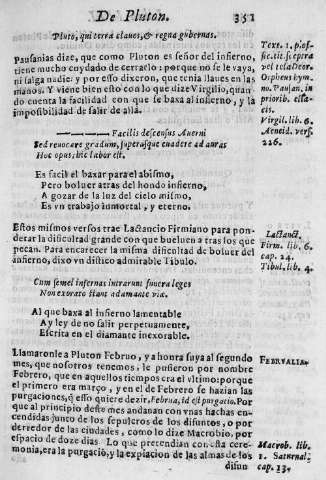 De Pluton. 351
Pluto, qui terræ claues, & regna gubernas.
Pausanias dize, que como Pluton es señor del infierno,
tiene mucho cuydado de cerrarlo: porque no se le vaya,
ni salga nadie: y por esso dixeron, que tenia llaues en las
manos. Y viene bien esto con lo que dize Virgilio, quan-
do cuenta la facilidad con que se baxa al infierno, y la
impossibilidad de salir de alla.
Text. 1. p.
Orpheus hym-
no. Pausan. in
Virgil. lib. 6.
Aeneid. vers.
226.
Facilis descensus Auerni
Sed reuocare gradum, superasque euadere ad auras
Hoc opus, hic labor est.
Es facil el baxar para el abismo,
Pero boluer atras del hondo infierno,
A gozar de la luz del cielo mismo,
Es vn trabajo inmortal, y eterno.
Estos mismos versos trae Lactancio Firmiano para pon-
derar la dificultad grande con que bueluen a tras los que
pecan. Para encarecer la misma dificultad de boluer del
infierno, dixo vn distico admirable Tibulo.
Lactanct.
Firm. lib. 6.
cap. 24.
Tibul. lib. 4.
Cum semel infernas intrarunt funera leges
Non exorato stant adamante viæ.
Al que baxa al infierno lamentable
Ay ley de no salir perpetuamente,
Escrita en el diamante inexorable.
Llamaronle a Pluton Februo, y a honra suya al segundo
mes, que nosotros tenemos, le pusieron por nombre
Febrero, que en aquellos tiempos era el vltimo: porque
el primero era março, y en el de Febrero se hazian las
purgaciones, q̃ esso quiere dezir, Februa, id est purgatio. Por
que al principio deste mes andauan con vnas hachas en-
cendidas junto de los sepulcros de los difuntos, o por
derredor de las ciudades, como lo dize Macrobio, por
espacio de doze dias. Lo que pretendian con esta cere-
monia, era la purgació, y la expiacion de las almas de los
difun
FEBRVALIA.
Macrob. lib.
1. Saturnal.
cap. 13.